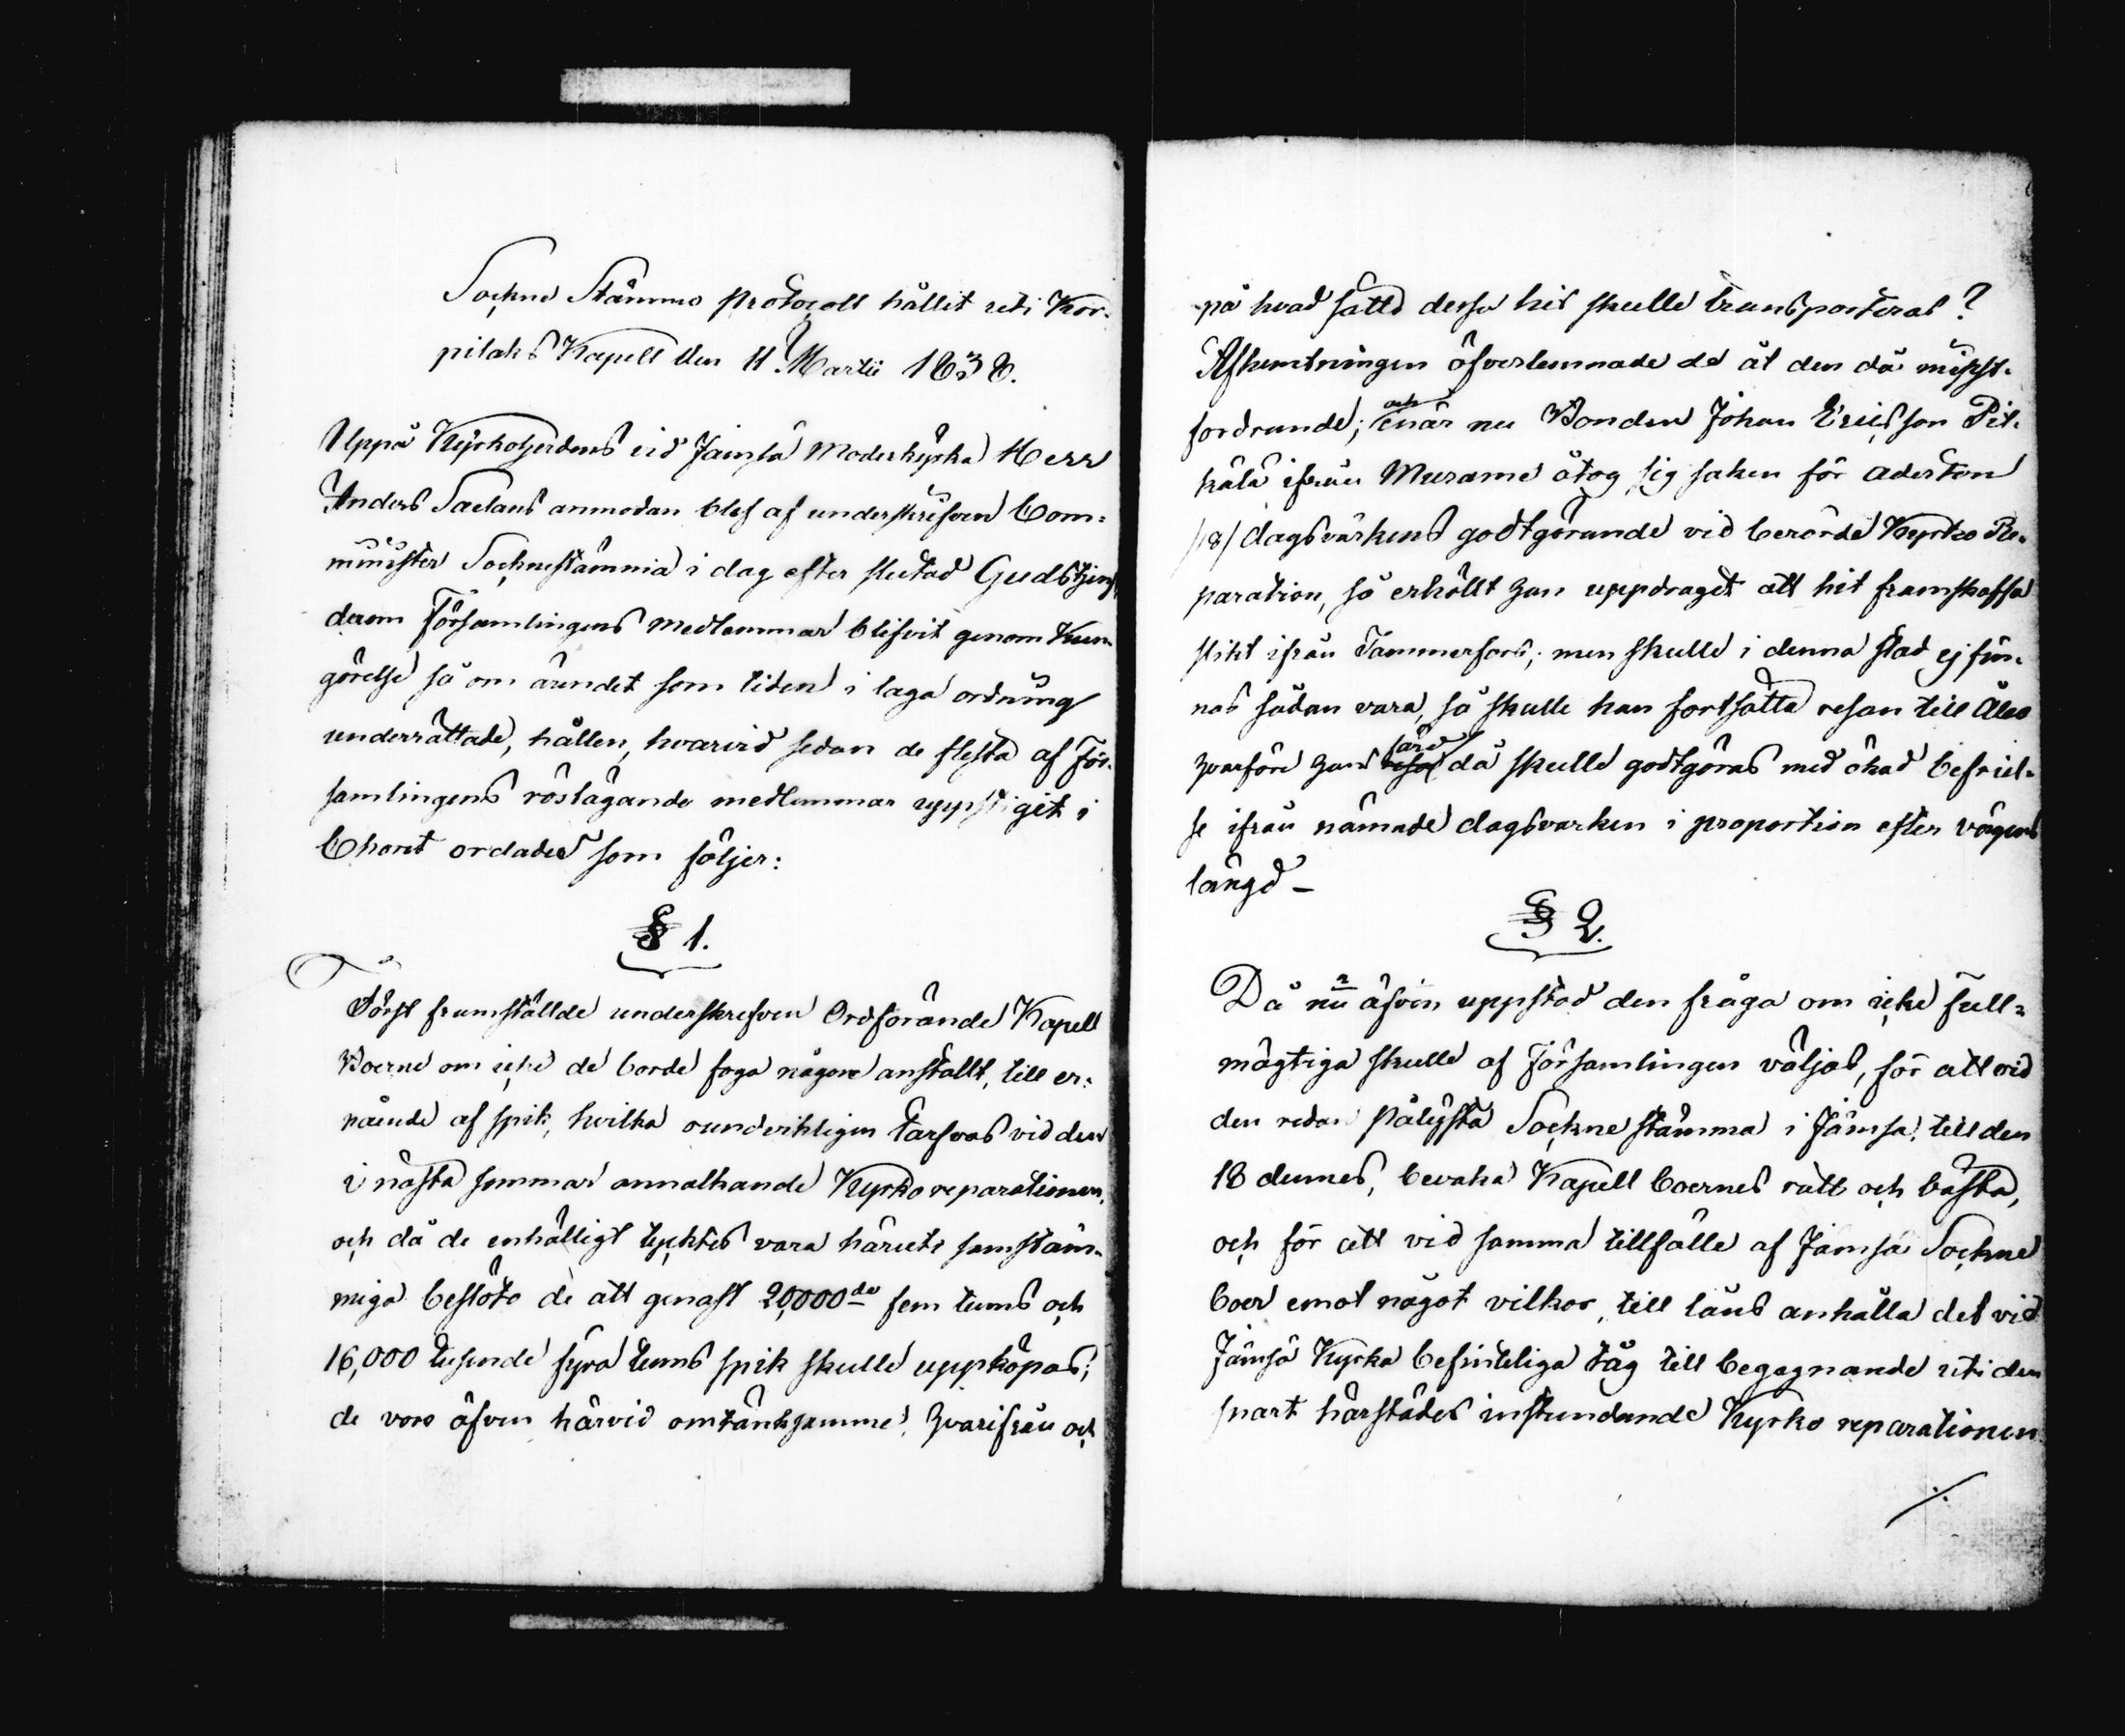 Sockne Stämmo protocoll hållit uti Kor-
pilaks Kapell den 11 Martii 1838.
Uppå Kyrkoherdens vid Jämsä Moderkyrka Herr
Anders Saelans anmodan blef af underskrifven Com-
minister Socknestämma i dag efter slutad Gudstjenst
derom Församlingens medlemmar blifvit genom Kun-
görelse så om ärendet som tiden i laga ordning
underrättade, hållen, hvarvid sedan de flesta af För-
samlingens röstägande medlemmar uppstigit i
Choret ordades som följer:
§ 1.
Först framställde underskrefven Ordförande Kapell
Boerne om icke de borde foga någon anstallt, till er-
nående af spik, hvilka oundvikligen tarfvas vid den
i nästa sommar annalkande Kyrko reparationen,
och då de enhälligt tycktes vara häruti samstäm-
miga beslöto de att genast 20,000de fem tums och
16,000 tusende fyra tums spik skulle uppköpas;
de voro äfven härvid omtänksamme, hvarifrån och
på hvad sätt dessa hit skulle transporteras?
Afhemtningen öfverlemnade de åt den då minst-
fordrande; och enär nu Bonden Johan Ericsson Pit-
kälä ifrån Murame åtog sig saken för aderton
/18/ dagsvärkens godtgörande vid berörde Kyrko Re-
paration, så erhöllt han uppdraget att hit framskaffa
slikt ifrån Tammerfors; men skulle i denna stad ej fin-
nas sådan vara, så skulle han fortsätta resan till Åbo
hvarföre hans resa färd då skulle godtgöras med ökad befriel-
se ifrån nämnde dagsvärken i proportion efter vägens
längd –
§ 2.
Då nu äfven uppstod den fråga om icke full-
mägtiga skulle af Församlingen väljas, för att vid
den redan pålysta Sockne stämma i Jämsä, till den
18 dennes, bevaka Kapell boernes rätt och bästa,
och för att vid samma tillfälle af Jämsä Sockne
boer emot något vilkor, till låns anhålla det vid
Jämsä Kyrka befintliga tåg till begagnande uti den
snart härstädes instundande Kyrko reparationen
./.